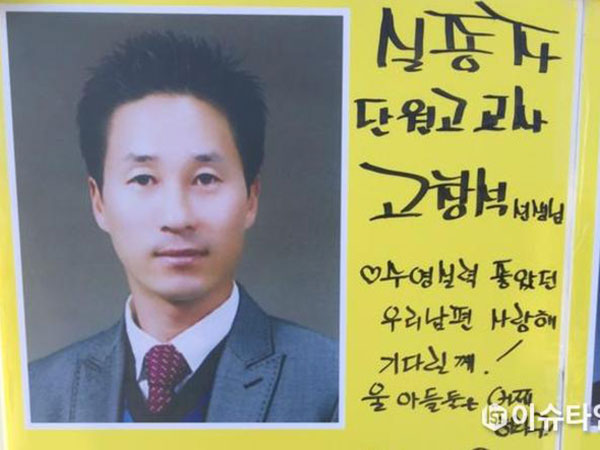 실종자
단원고 교사
고창석 선생님
♡수영실력 좋았던
우리남편 사랑해
기다릴께!
울 아들들은 어쩌
이슈타